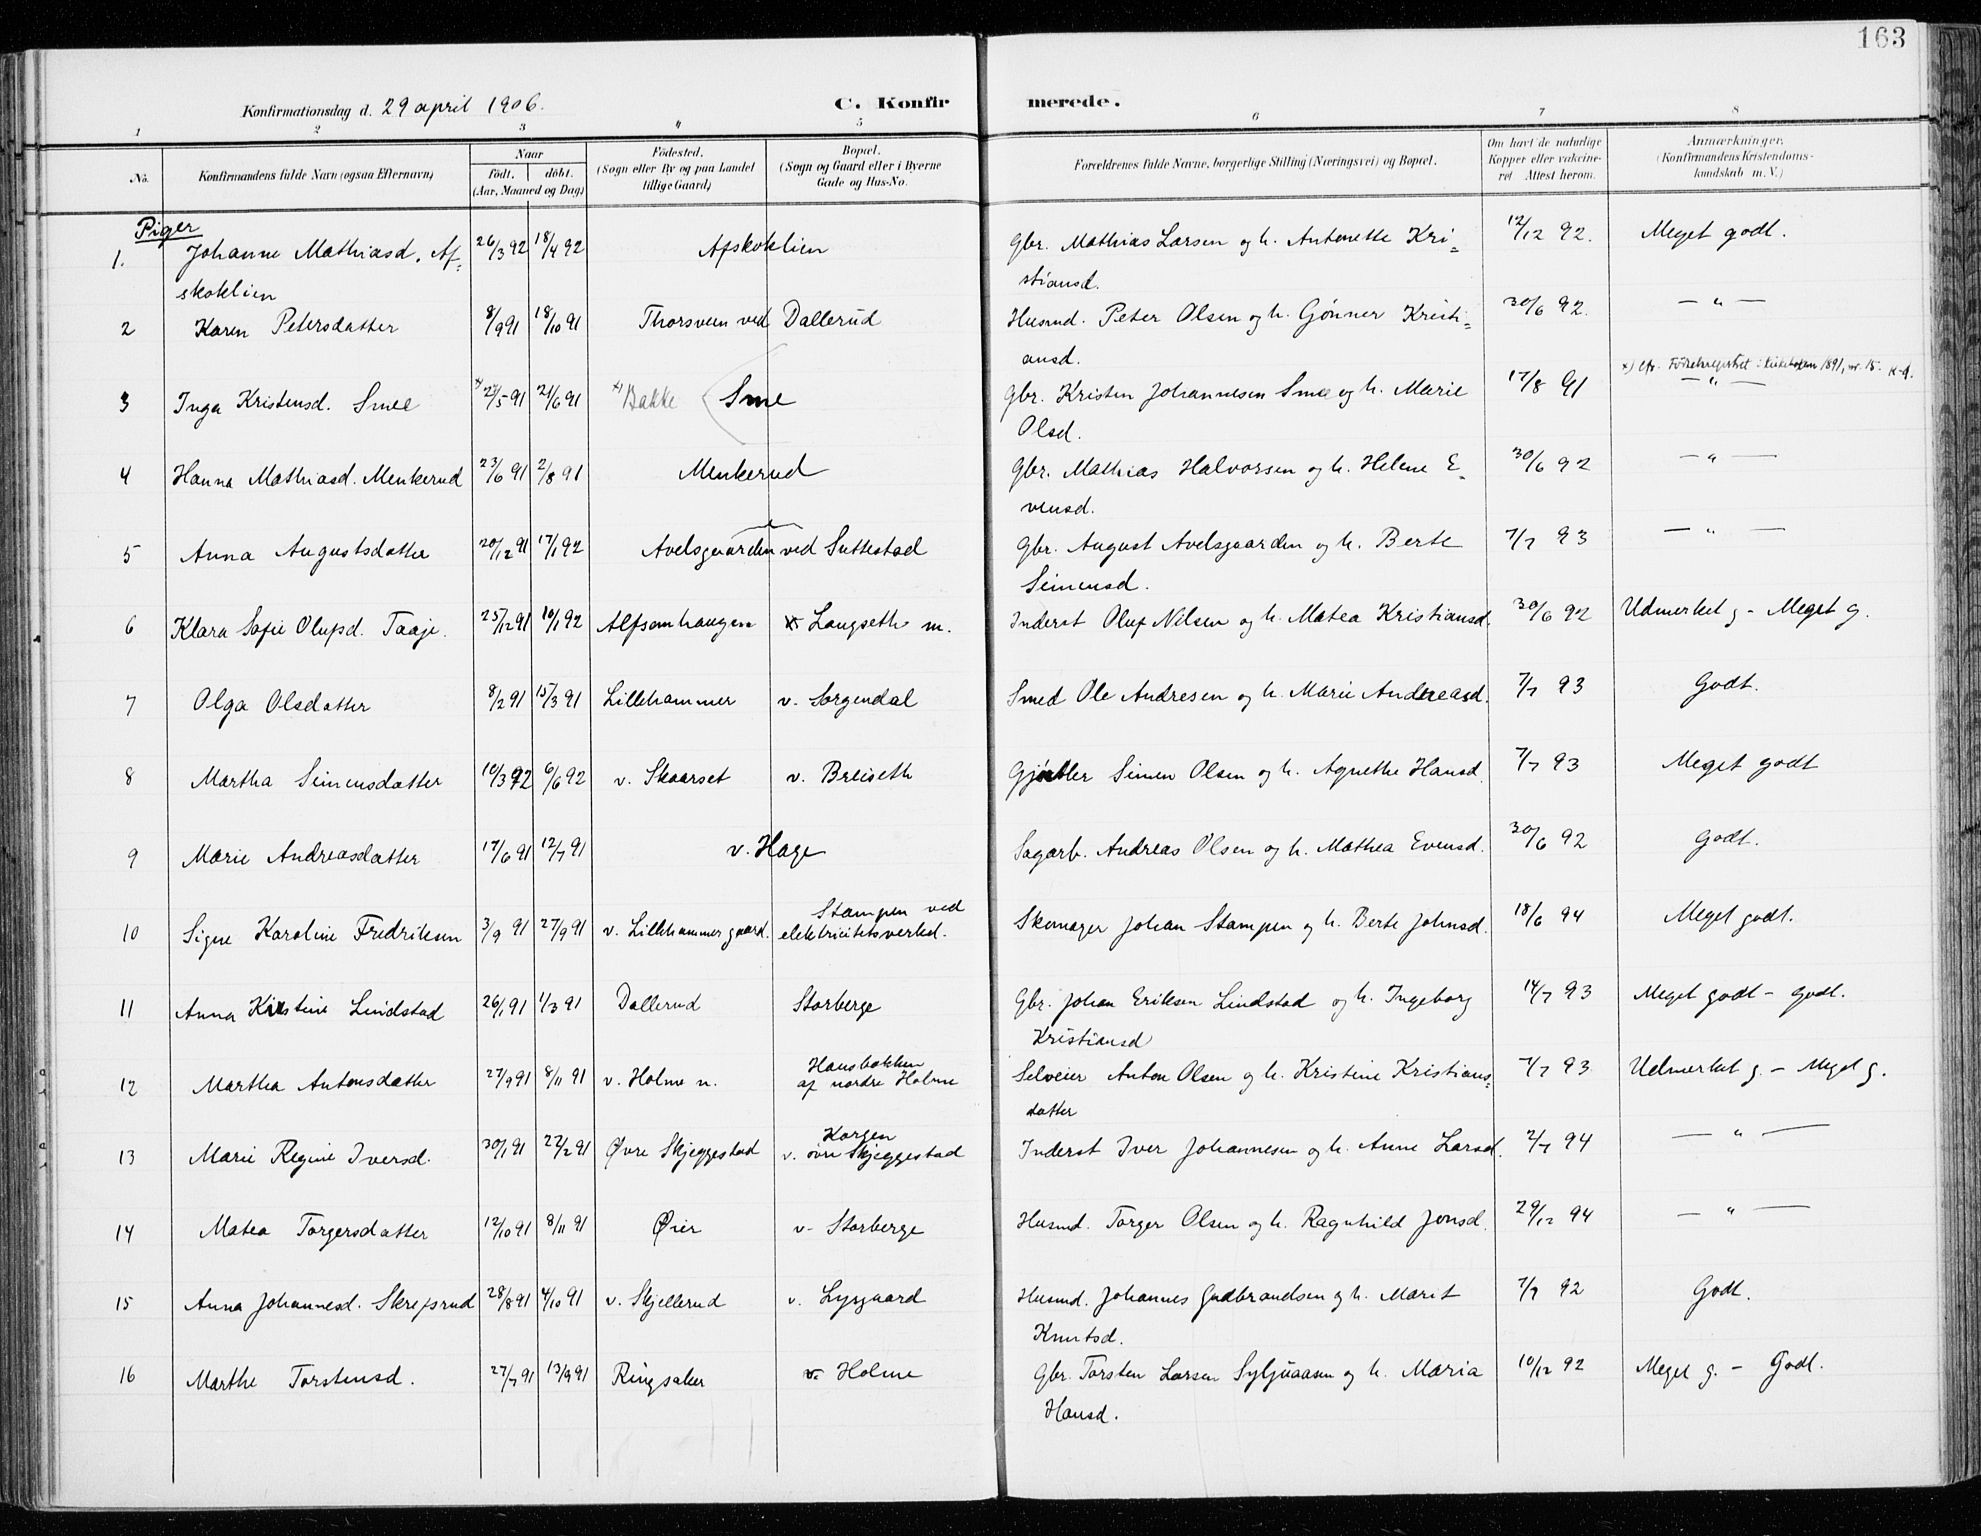 163
Konfirmationsdag d. 29 april 1906.
C. Konfirmerede.
1 2 3 4 5 6 7 8
No.
Konfirmandens fulde Navn (ogsaa Efternavn)
Naar
født. døbt.
(Aar, Maaned og Dag)
Fødested.
(Sogn eller By og paa Landet
tillige Gaard)
Bopæl.
(Sogn og Gaard eller i Byerne
Gade og Hus-No.
Forældrenes fulde Navne, borgerlige Stilling (Næringsvei) og Bopæl.
Om havt de naturlige
Kopper eller vakcine-
ret Attest herom.
Anmærkninger.
(Konfirmandens Kristendoms-
kundskab m. V.)
Piger
1. Johanne Mathiasd. Af= 26/3 92 18/4 92 Afskoklien Gbr. Mathias Larsen og h. Antonette Kri= 12/12 92. Meget godt.
skoklien stiansd.
2 Karen Petersdatter 8/9 91 18/10 91 Thorsveen ved Dallerud Husmd. Peter Olsen og h. Gønner Kristi= 30/6 92. — " —
ansd.
x) cfr. Fødselsregistret i kirkebogen 1891, nr. 15.
3 Inga Kristensd. Smee x) 27/5 91 21/6 91 x) Bakke Sme Gbr. Kristen Johannesen Smee og h. Marie 17/8 91 — " —
Olsd.
4 Hanna Mathiasd. Menkerud 23/6 91 2/8 91 Menkerud Gbr. Mathias Halvorsen og h. Helene E- 30/6 92 — " —
vensd.
5 Anna Augustsdatter 20/12 91 17/1 92 Avelsgaarden ved Suttestad Gbr. August Avelsgaarden og h. Berte 7/7 93 — " —
Simensd.
6 Klara Sofie Olufsd. Taaje. 25/12 91 10/1 92 Alfsomhaugen Langseth m. Inderst Oluf Nilsen og h. Matea Kristiansd. 30/6 92 Udmerket g - Meget g.
7 Olga Olsdatter 8/2 91 15/3 91 Lillehammer v. Sorgendal Smed Ole Andresen og h. Marie Andreasd. 7/7 93 Godt.
8 Martha Simensdatter 10/3 92 6/6 92 v. Skaarset v. Breiseth Gjørtler Simen Olsen og h. Agnethe Hansd. 7/7 93 Meget godt
9 Marie Andreasdatter 17/6 91 12/7 91 v. Hage Sagarb. Andreas Olsen og h. Mathea Evensd. 30/6 92 Godt.
Stampen ved
10 Signe Karoline Fredriksen 3/9 91 27/9 91 v. Lillehammer gaard. elektricitetsverked. Skomager Johan Stampen og h. Berte Johnsd. 18/6 94 Meget godt.
11 Anna Kristine Lindstad 26/1 91 1/3 91 Dallerud Storberge Gbr. Johan Eriksen Lindstad og h. Ingeborg 14/7 93 Meget godt - Godt.
Kristiansd
Hansbakken
12 Martha Antonsdatter 27/9 91 8/11 91 v. Holme n. af nordre Holme Selveier Anton Olsen og h. Kristine Kristians= 7/7 93 Udmerket g. - Meget g.
datter
Korgen
13 Marie Regine Iversd. 30/1 91 22/2 91 Øvre Skjeggestad v. øvre Skjeggestad Inderst Iver Johannesen og h. Anne Larsd. 2/7 94 — " —
14 Matea Torgersdatter 12/10 91 8/11 91 Øier v. Storberge Husmd. Torger Olsen og h. Ragnhild Jonsd. 29/12 94 — " —
15 Anna Johannesd. Skrefsrud 28/8 91 4/10 91 v. Skjellerud v. Lysgaard Husmd. Johannes Gudbrandsen og h. Marit 7/7 92 Godt.
Knutsd.
16 Marthe Torstensd. 27/7 91 13/9 91 Ringsaker v. Holme Gbr. Torsten Larsen Syljuaasen og h. Maria 10/12 92 Meget g. - Godt.
Hansd.